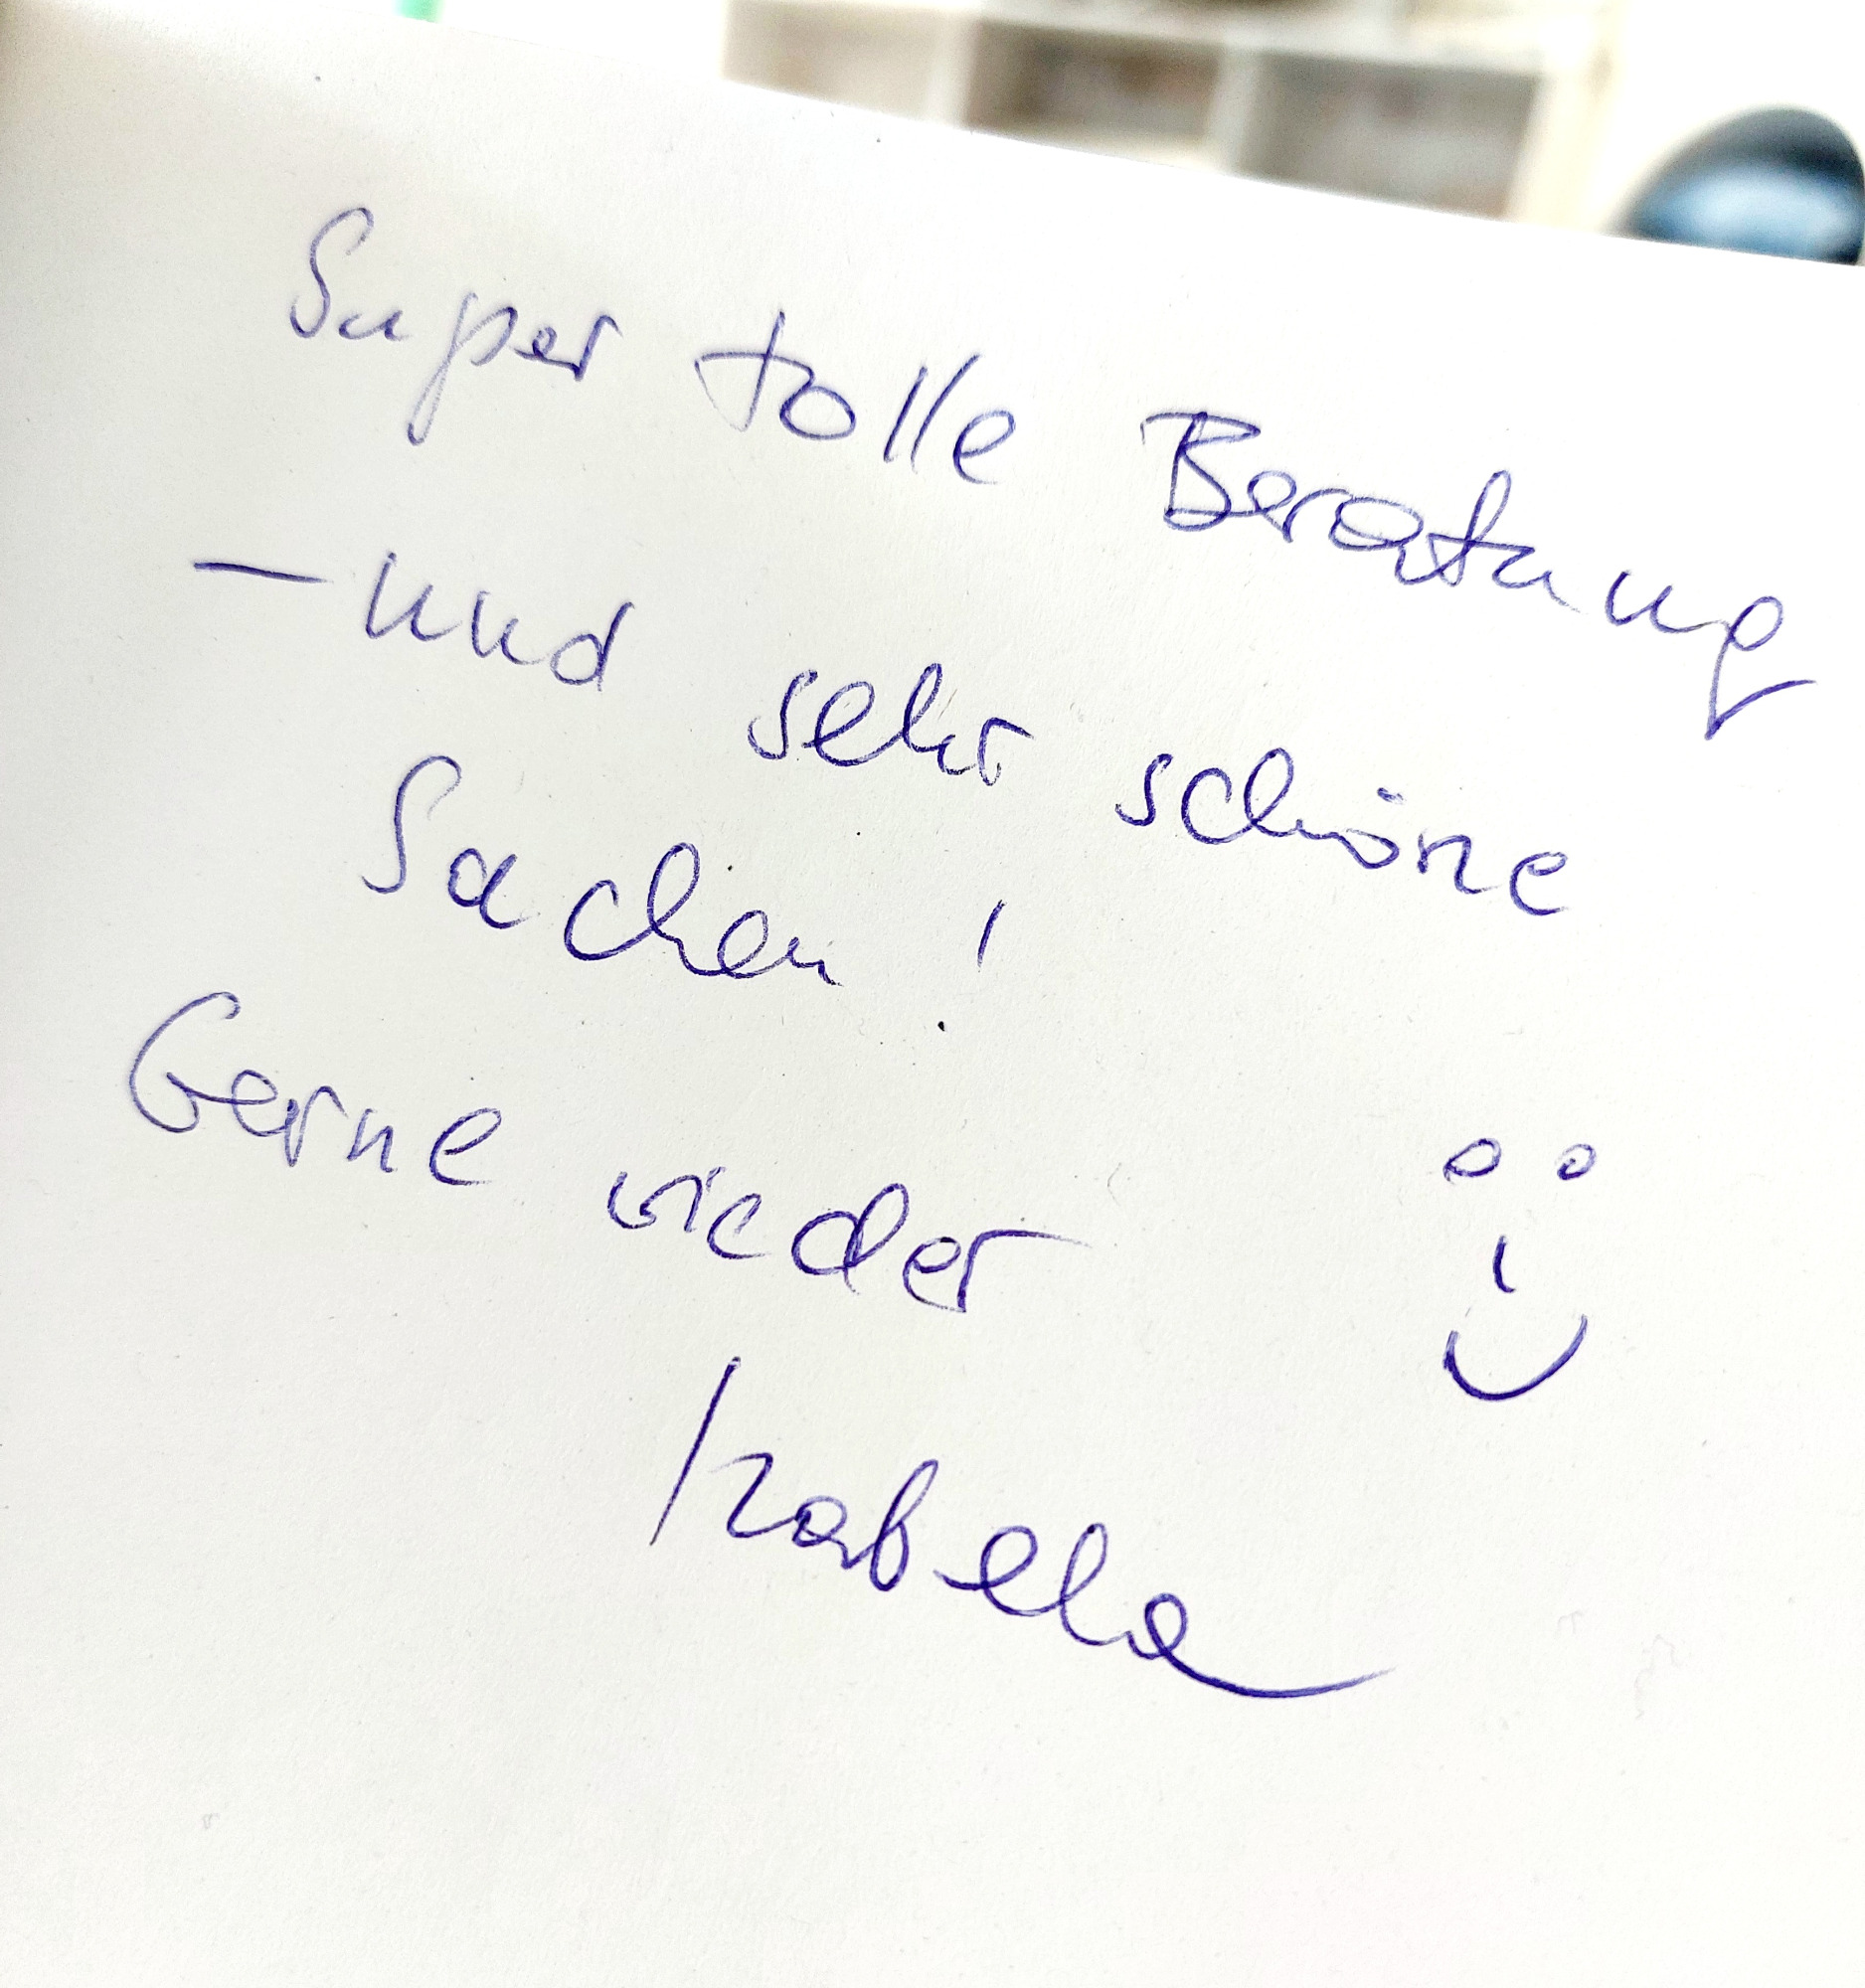 Super tolle Beratung
- und sehr schöne
Sachen!
Gerne wieder
Izabela